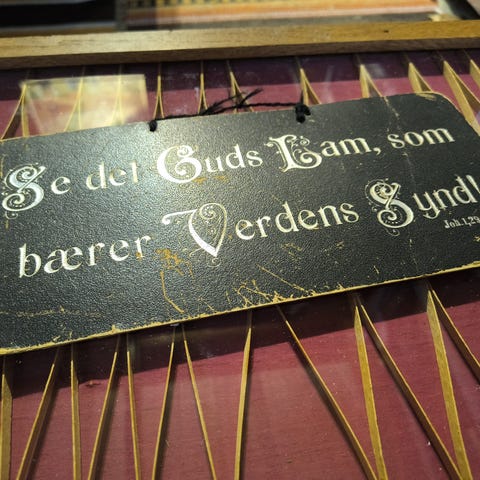 Se det Guds Lam, som
bærer Verdens Synd!
Joh. 1,29